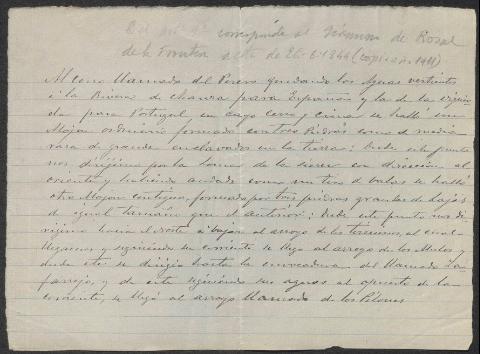 corresponde al término de Rosal
de la Frontera acta de 26-6-1844 (copiada en 1911)
Al cerro llamado del Perero quedando las Aguas vertientes
a la Rivera de Chanza para España y las de la
da para Portugal, en cuyo cerro y cima se halló un
Mojon ordinario formado con tres Piedras como de media
vara de grandes enclavadas en la tierra: Desde este punto
nos dirijimos por la loma de la sierra con direccion al
oriente y habiendo andado como un tiro de bala se halló
otro Mojon contiguo, formado por tres piedras grandes de lajas
de igual tamaño que el anterior: Desde este punto nos di-
rigimos hacia el Norte a bajar al arroyo de las al cual
llegamos y siguiendo su corriente se llegó al arroyo de los Mulos y
desde este se dirijió hasta la embocadura del llamado La
parrejo, y de este siguiendo sus aguas al opuesto de la
corriente, se llegó al arroyo llamado de los Pilones